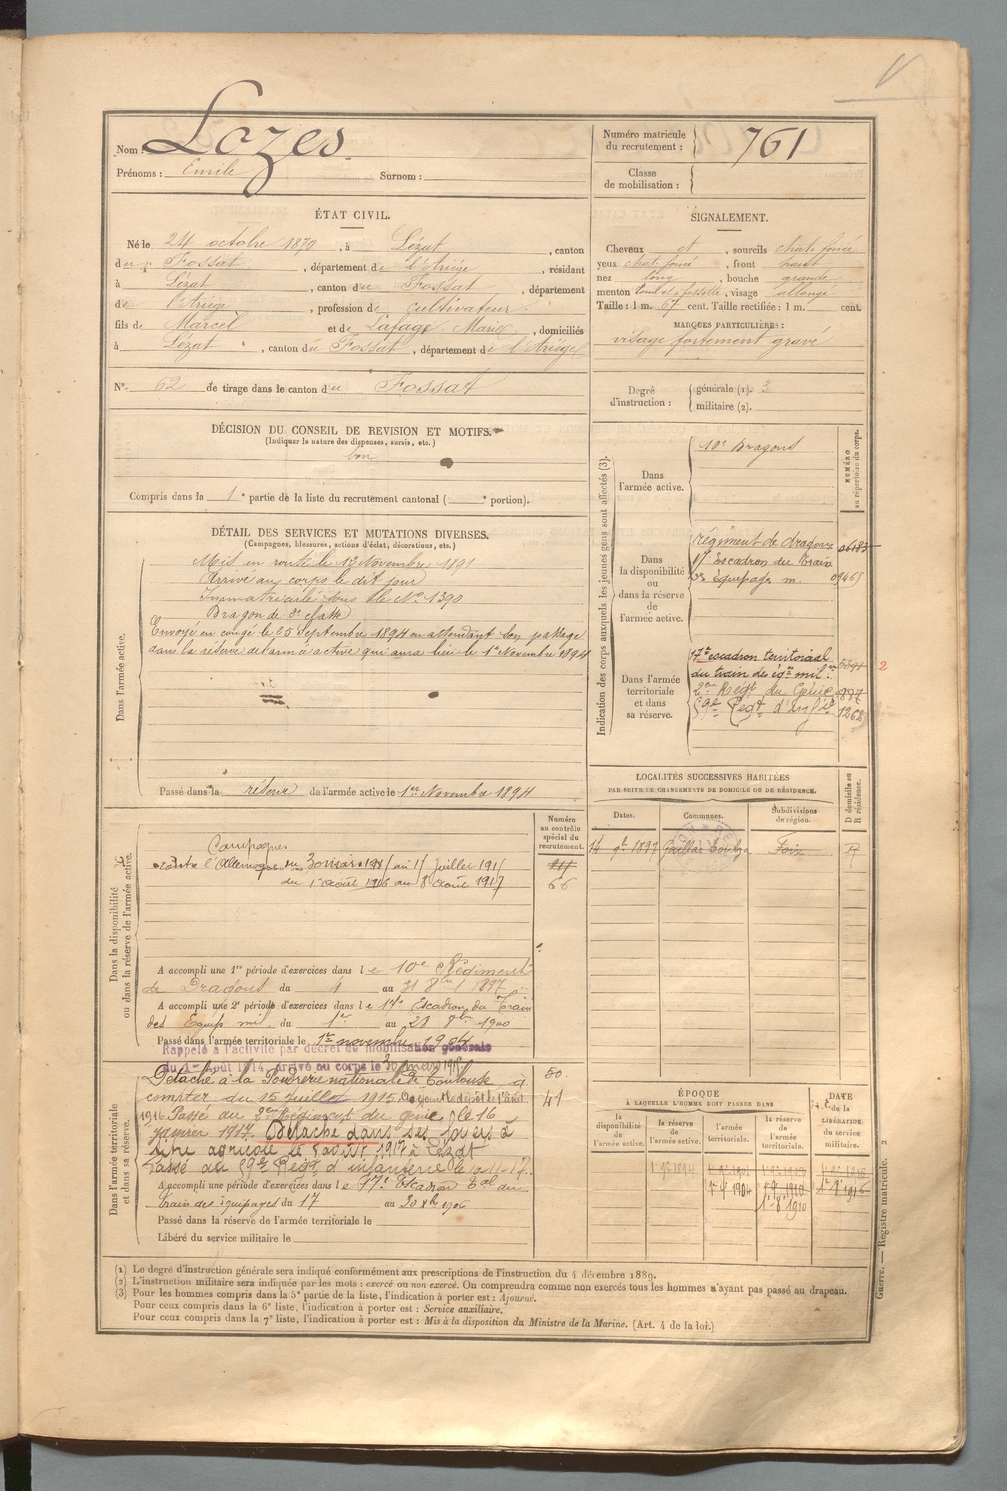 Nom : Lozes
Prénoms : Emile Surnom :
Numéro matricule du recrutement : 761
Classe de mobilisation :
ÉTAT CIVIL.
Né le 24 octobre 1870, à Lézat, canton
du Fossat, département de l'Ariège, résidant
à Lézat, canton du Fossat, département
de l'Ariège, profession de cultivateur
fils de Marcel et de Lafage Marie, domiciliés
à Lézat, canton du Fossat, département de l'Ariège
N° 62 de tirage dans le canton du Fossat
SIGNALEMENT.
Cheveux et, sourcils chat. foncé
yeux chat. foncé, front haut
nez long, bouche grande
menton rond et à fossette, visage allongé
Taille : 1 m. 67 cent. Taille rectifiée : 1 m. cent.
MARQUES PARTICULIÈRES :
visage fortement gravé
Degré d'instruction : générale (1). 3
militaire (2).
DÉCISION DU CONSEIL DE REVISION ET MOTIFS.
(Indiquer la nature des dispenses, sursis, etc.)
bon
Compris dans la 1e partie de la liste du recrutement cantonal ( e portion).
DÉTAIL DES SERVICES ET MUTATIONS DIVERSES.
(Campagnes, blessures, actions d'éclat, décorations, etc.)
Dans l'armée active.
Mis en route le 12 Novembre 1891
Arrivé au corps le dit jour
Immatriculé sous le No 1390
Dragon de 2e classe
Envoyé en congé le 25 Septembre 1894 en attendant son passage
dans la réserve de l'armée active qui aura lieu le 1er Novembre 1894
Passé dans la réserve de l'armée active le 1er Novembre 1894
Indication des corps auxquels les jeunes gens sont affectés (3).
NUMÉRO au répertoire du corps.
Dans l'armée active.
10e Dragons
Dans la disponibilité ou dans la réserve de l'armée active.
régiment de dragons
17e Escadron du Train
des équipages m. 09465
Dans l'armée territoriale et dans sa réserve.
17e escadron territorial
du train des éqes mil. 5391 2
2e Régt du Génie 897
59e Régt d'Infie 1262
LOCALITÉS SUCCESSIVES HABITÉES
PAR SUITE DE CHANGEMENTS DE DOMICILE OU DE RÉSIDENCE.
D domicile ou R résidence.
Dates. Communes. Subdivisions de région.
14 9e 1897 Gaillac Toulza Foix R
Dans la disponibilité ou dans la réserve de l'armée active.
Numéro au contrôle spécial du recrutement.
Campagnes
contre l'Allemagne du 30 mars 1915 au 15 juillet 1915
du 1er Août 1916 au 8 Août 1917
66
A accompli une 1re période d'exercices dans le 10e Régiment
de Dragons du 4 au 31 8bre 1897
A accompli une 2e période d'exercices dans le 17e Escadron du Train
des Equip. mil. du 1er au 28 8bre 1900
Passé dans l'armée territoriale le 1er novembre 1904
Rappelé à l'activité par décret de mobilisation générale
du 1er Août 1914, arrivé au corps le 30 mars 1915
Dans l'armée territoriale et dans sa réserve.
Détaché à la Poudrerie nationale de Toulouse à 50.
compter du 15 Juillet 1915. Rejoint le dépôt le 1er août 41
1916. Passé au 2e Régiment du génie le 16
janvier 1917. Détaché dans ses foyers à
titre agricole le 8 août 1917 à Lézat
Passé au 59e Régt d'infanterie le 10-11-17.
A accompli une période d'exercices dans le 17e Escadron Tal du
train des équipages du 17 au 30 Xb 1906
Passé dans la réserve de l'armée territoriale le
Libéré du service militaire le
ÉPOQUE
À LAQUELLE L'HOMME DOIT PASSER DANS
la disponibilité de l'armée active.
la réserve de l'armée active.
l'armée territoriale.
la réserve de l'armée territoriale.
DATE de la LIBÉRATION du service militaire.
1er 9e 1894
1er 9e 1904 1er 9e 1910 1er 9e 1916
1er 8e 1910
(1) Le degré d'instruction générale sera indiqué conformément aux prescriptions de l'instruction du 4 décembre 1889.
(2) L'instruction militaire sera indiquée par les mots : exercé ou non exercé. On comprendra comme non exercés tous les hommes n'ayant pas passé au drapeau.
(3) Pour les hommes compris dans la 5e partie de la liste, l'indication à porter est : Ajourné.
Pour ceux compris dans la 6e liste, l'indication à porter est : Service auxiliaire.
Pour ceux compris dans la 7e liste, l'indication à porter est : Mis à la disposition du Ministre de la Marine. (Art. 4 de la loi.)
Guerre. — Registre matricule. 2